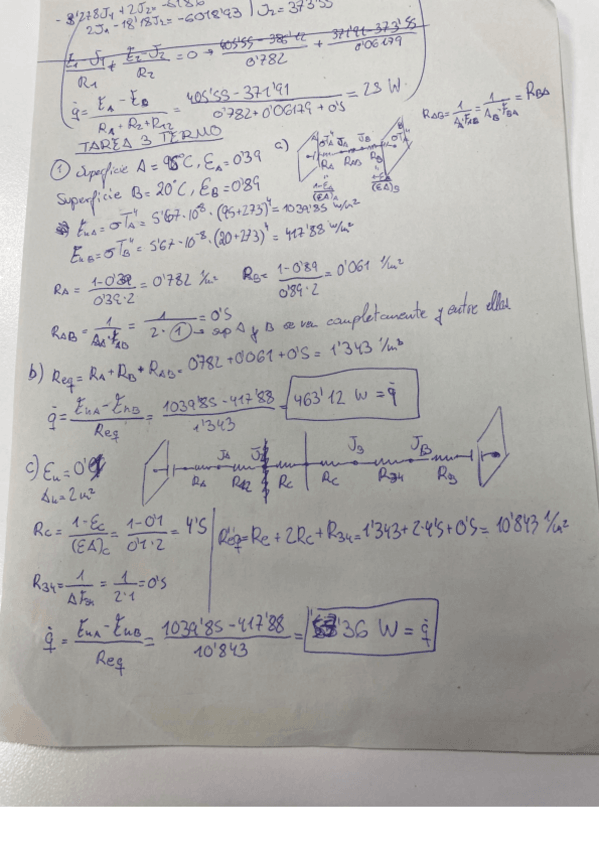 - 8'278J₁ + 2J₂ = -618'6
2J₁ - 18'18J₂ = -6018'93 | J₂ = 373'55
(E₁-J₁)/R₁ + (E₂-J₂)/R₂ = 0 → + (371'91-373'55)/0'06179
q̇ = (E_A - E_B)/(R_A+R₂+R₁₂) = (405'55-371'91)/(0'782+0'06179+0'5) = 25 W.
TAREA 3 TERMO
① Superficie A = 95°C, ε_A = 0'39
Superficie B = 20°C, ε_B = 0'89
a)
σT_A⁴ J_A J_B σT_B⁴
R_A R_AB R_B
(1-ε_A)/(εA)_A (1-ε_B)/(εA)_B
R_AB = 1/(A_A·F_AB) = 1/(A_B·F_BA) = R_BA
E_nA = σT_A⁴ = 5'67·10⁻⁸·(95+273)⁴ = 1039'85 W/m²
E_nB = σT_B⁴ = 5'67·10⁻⁸·(20+273)⁴ = 417'88 W/m²
R_A = (1-0'39)/(0'39·2) = 0'782 1/m² R_B = (1-0'89)/(0'89·2) = 0'061 1/m²
R_AB = 1/(A_A·F_AB) = 1/(2·①) = 0'5 → sup A y B se ven completamente y entre ellas
b) Req = R_A + R_B + R_AB = 0782 + 0'061 + 0'5 = 1'343 1/m²
q̇ = (E_nA - E_nB)/Req = (1039'85 - 417'88)/1'343 = 463'12 W = q̇
c) ε_n = 0'1
A_n = 2m²
J_A J₂ J₃ J_B
R_A R₁₂ R_C R_C R₃₄ R_B
R_C = (1-ε_C)/(εA)_C = (1-0'1)/(0'1·2) = 4'5 | Req = Re + 2R_C + R₃₄ = 1'343 + 2·4'5 + 0'5 = 10'843 1/m²
R₃₄ = 1/(A·F₃₄) = 1/(2·1) = 0'5
q̇ = (E_nA - E_nB)/Req = (1039'85 - 417'88)/10'843 = '36 W = q̇